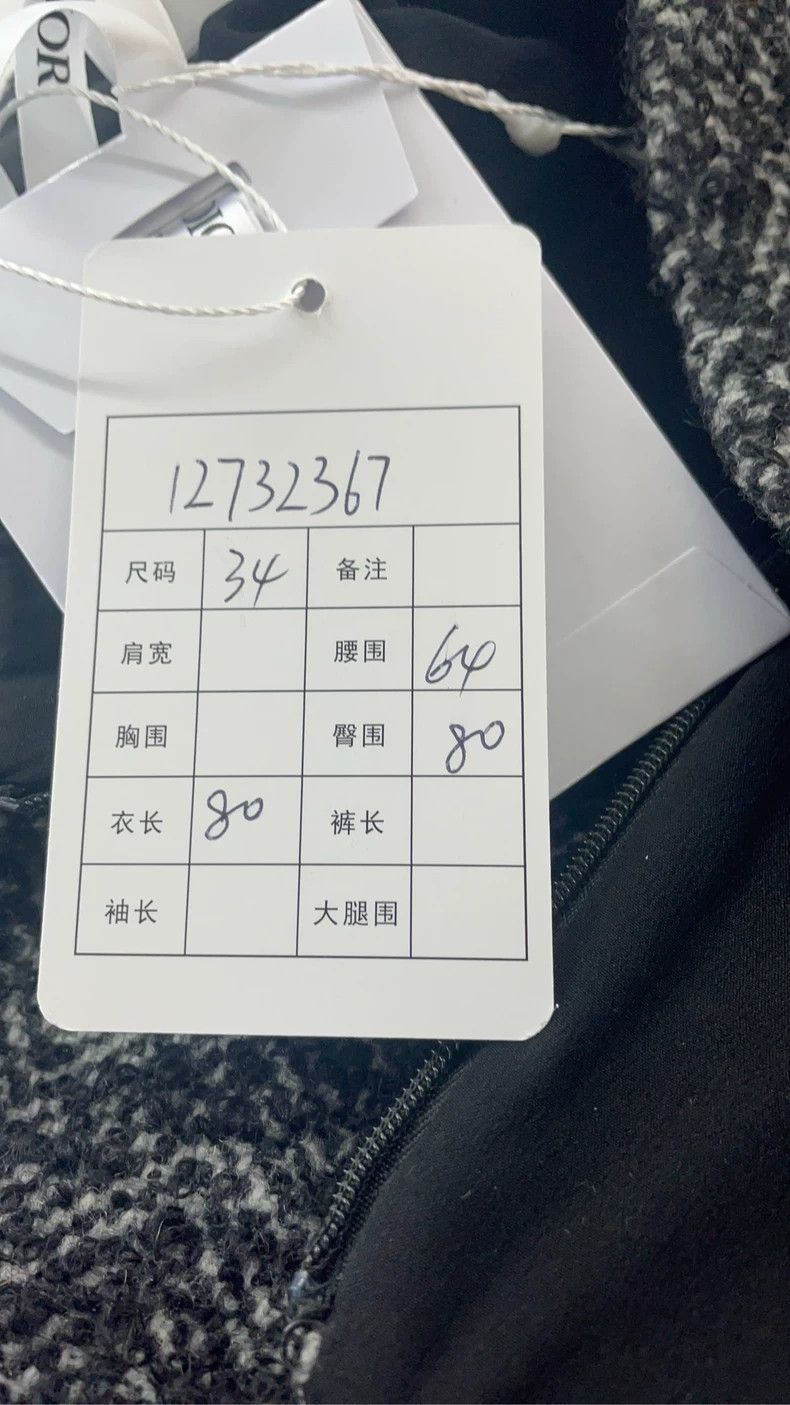 OR
12732367
尺码 34 备注
肩宽 腰围 64
胸围 臀围 80
衣长 80 裤长
袖长 大腿围